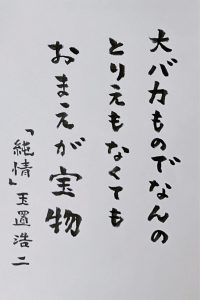 大バカものでなんの
とりえもなくても
おまえが宝物
「純情」玉置浩二